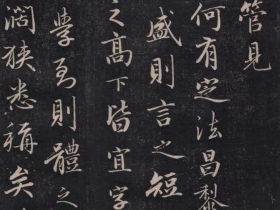 管見
何有定法昌黎
盛則言之短
之高下皆宜字
學至則體之
濶狹悉稱矣